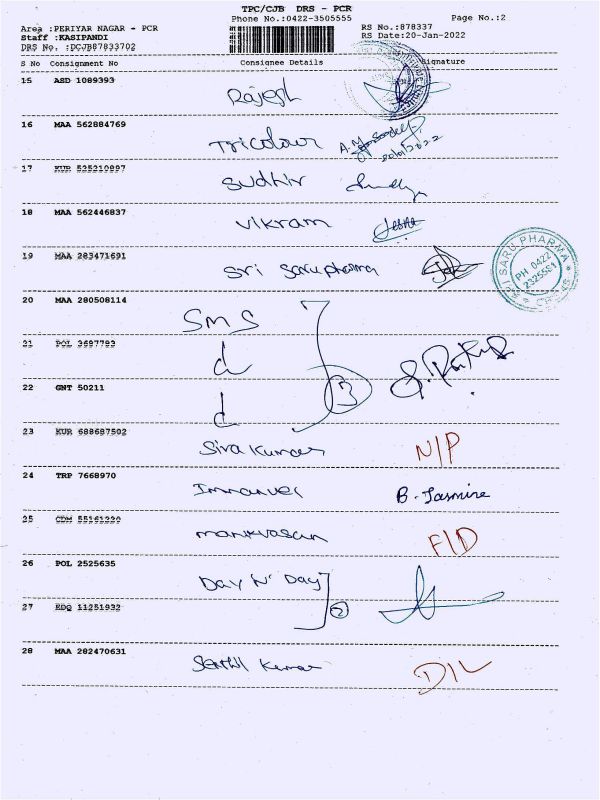 TPC/CJB DRS - PCR
Phone No.:0422-3505555
Page No.:2
Area :PERIYAR NAGAR - PCR
RS No.:878337
Staff :KASIPANDI
RS Date:20-Jan-2022
DRS No. :DCJB87833702
S No Consignment No Consignee Details Signature
15 ASD 1089393 Rajesh
16 MAA 562884769 Tricolour
20/01/2022
17 KUR 535210897 Sudhir
18 MAA 562446837 Vikram
19 MAA 283471691 Sri Saru pharma
SRI SARU PHARMA
PH 0422
2325581
CBE-45
20 MAA 280508114 SMS
21 POL 3697793
3
22 GNT 50211
23 KUR 688687502 Siva Kumar N/P
24 TRP 7668970 Immanuel B. Jasmine
25 CDM 55161220 F/D
26 POL 2525635 Day 'N' Day
27 EDQ 11251932 2
28 MAA 282470631 Senthil Kumar D/L